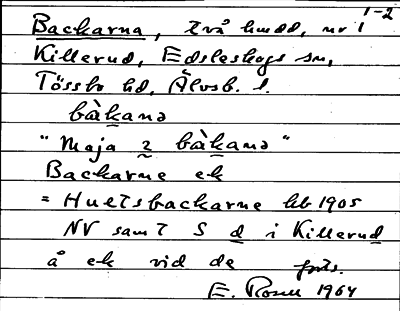 1-2
Backarna, två hmdd, nr 1
Killerud, Edsleskogs sn,
Tössbo hd, Älvsb. l.
bàkanə
"Maja 2 bàkanə"
Backarne ek
= Huetsbackarne hb 1905
NV samt S d i Killerud
å ek vid de forts.
E. Rosell 1964